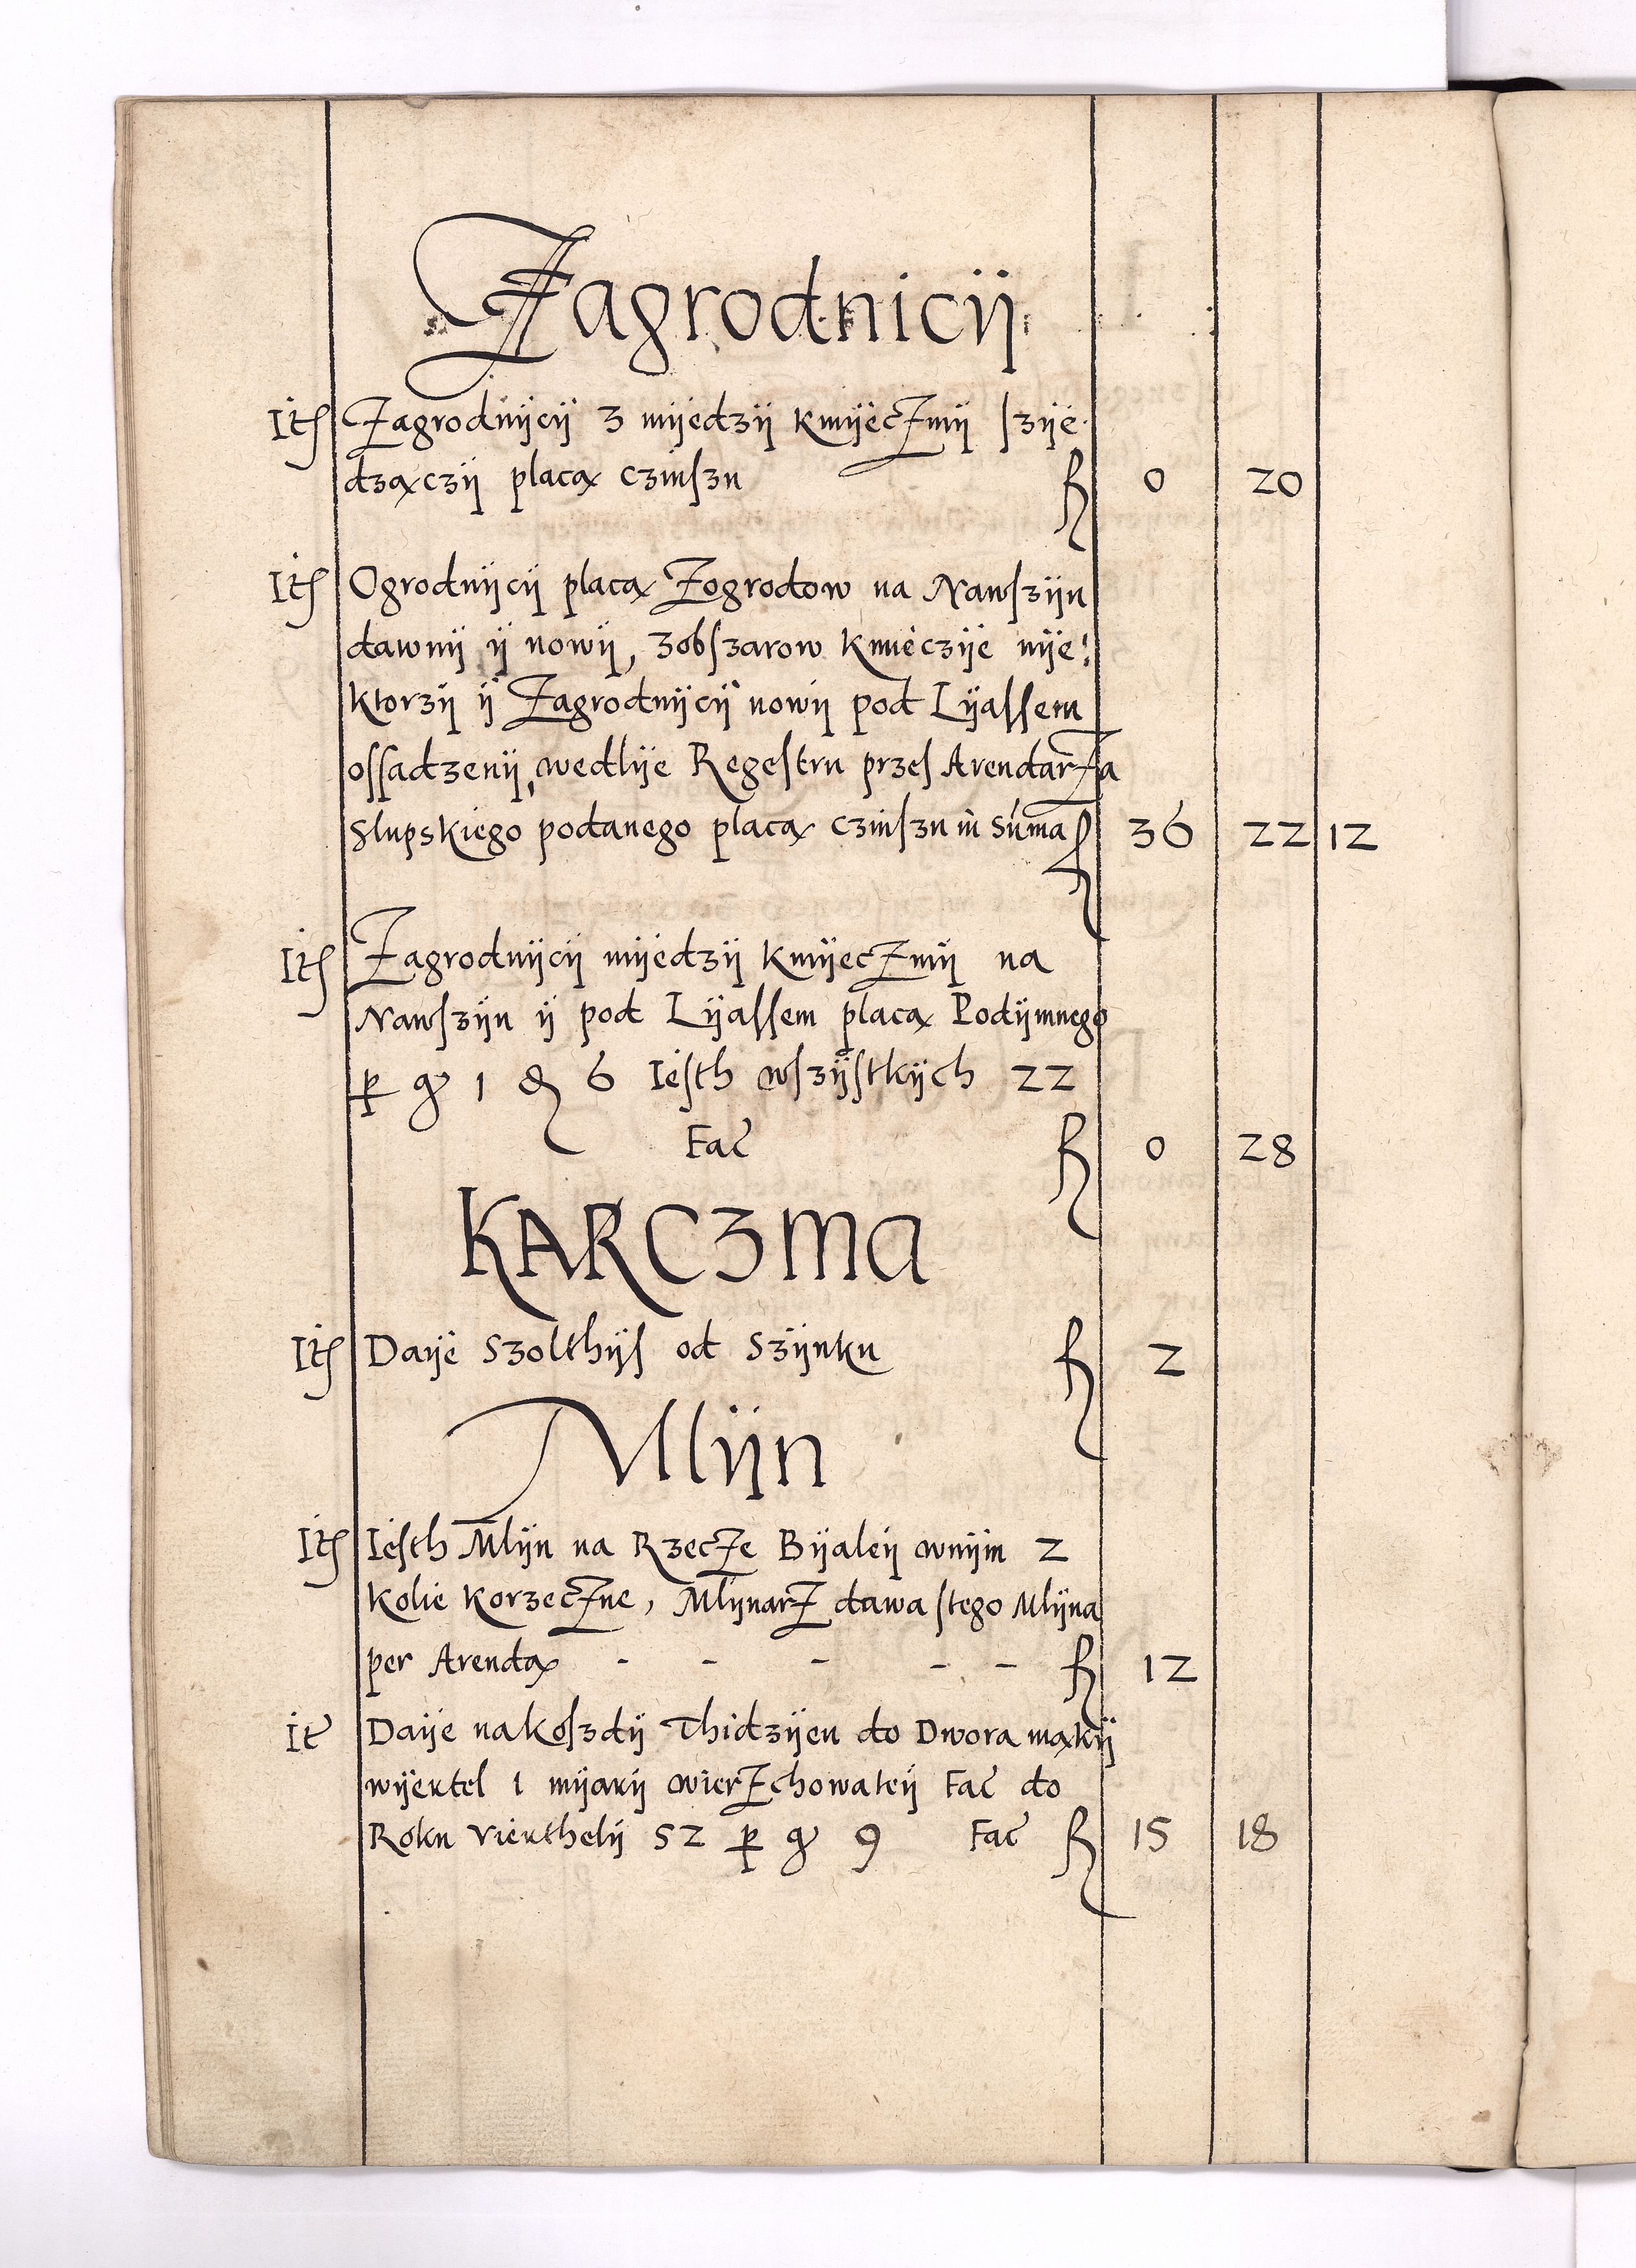 Zagrodnicÿ
Itꝭ Zagrodnÿcÿ z mÿedzÿ kmÿeczmÿ ſzÿe
dzączÿ placą czinſzu fl 0 20
Itꝭ Ogrodnÿcÿ placą Zogrodow na Nawſzÿu
dawnÿ ÿ nowÿ, zobſzarow kmieczÿe nÿe
ktorzÿ ÿ Zagrodnÿcÿ nowÿ pod Lÿaſſem
oſſadzenÿ, wedlÿe Regeſtru przeſ Arendarza
Slupskiego podanego placą czinſzu in Suma fl 36 22 12
Itꝭ Zagrodnÿcÿ mÿedzÿ kmÿeczmÿ na
Nawſzÿu ÿ pod Lÿaſſem placą Podÿmnego
ꝑ gr 1 ₰ 6 Ieſth wſzÿſtkÿch 22
Fac fl 0 28
KARCZMA
Itꝭ Daÿe Szolthÿſ od Szÿnku fl 2
Mlÿn
Itꝭ Ieſth Mlÿn na Rzecze Bÿaleÿ wnÿm 2
kolie korzeczne, Mlÿnarz dawa ſtego Mlÿna
per Arendą - - - - - fl 12
It Daÿe nakoſzdÿ Thidzÿen do Dwora mąkÿ
wÿertel 1 mÿarÿ wierzchowateÿ Fac do
Roku vierthelÿ 52 ꝑ gr 9 Fac fl 15 18